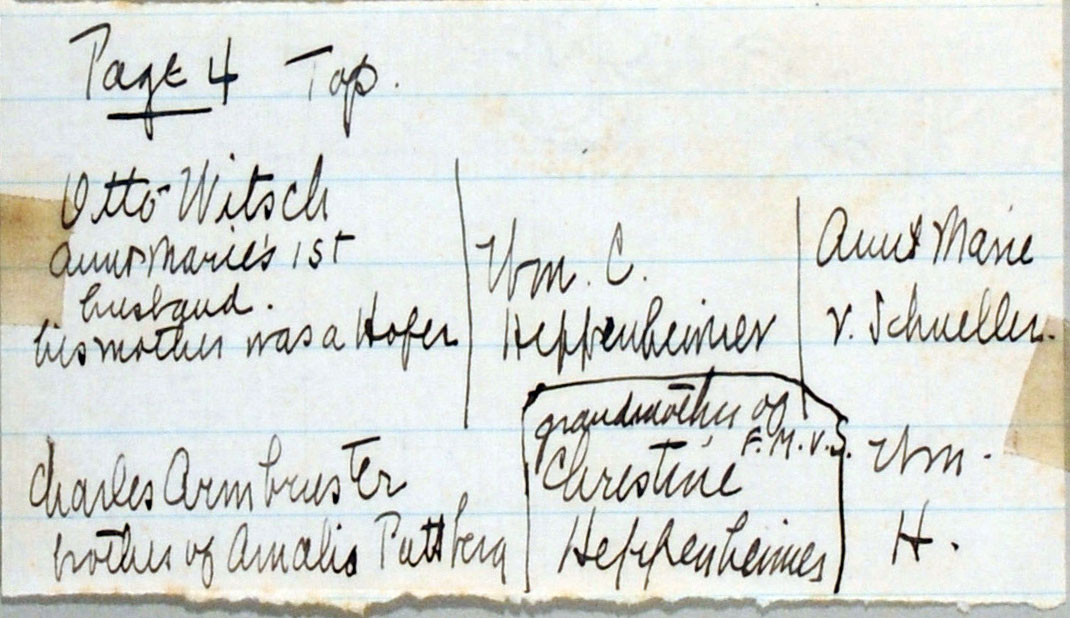 Page 4 Top.
Otto Witsch
Aunt Marie's 1st
husband.
his mother was a Hofer
Wm. C.
Heppenheimer
Aunt Marie
v. Schueller.
Charles Armbruster
brother of Amalia Puttberg
grandmother of
F. M. V. S.
Christine
Heppenheimer
Wm.
H.